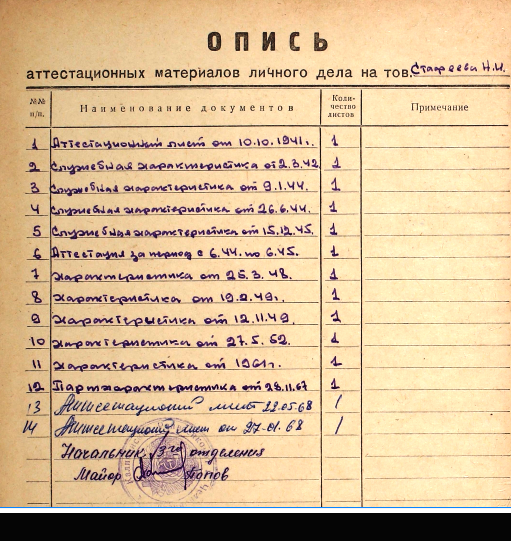 ОПИСЬ
аттестационных материалов личного дела на тов. Стафеева Н.И.
№№ п/п. Наименование документов Коли- чество листов Примечание
1 Аттестационный лист от 10.10.1941г. 1
2 Служебная характеристика от 2.3.42 1
3 Служебная характеристика от 9.1.44. 1
4 Служебная характеристика от 26.6.44. 1
5 Служебная характеристика от 15.12.45. 1
6 Аттестация за период с 6.44. по 6.45. 1
7 Характеристика от 25.3.48. 1
8 Характеристика от 19.2.49г. 1
9 Характеристика от 12.11.49. 1
10 Характеристика от 27.5.52. 1
11 Характеристика от 1961г. 1
12 Партхарактеристика от 28.11.67 1
13 Аттестационный лист 22.05.68 1
14 Аттестационный лист от 27.01.68 1
Начальник 3го отделения
Майор Попов